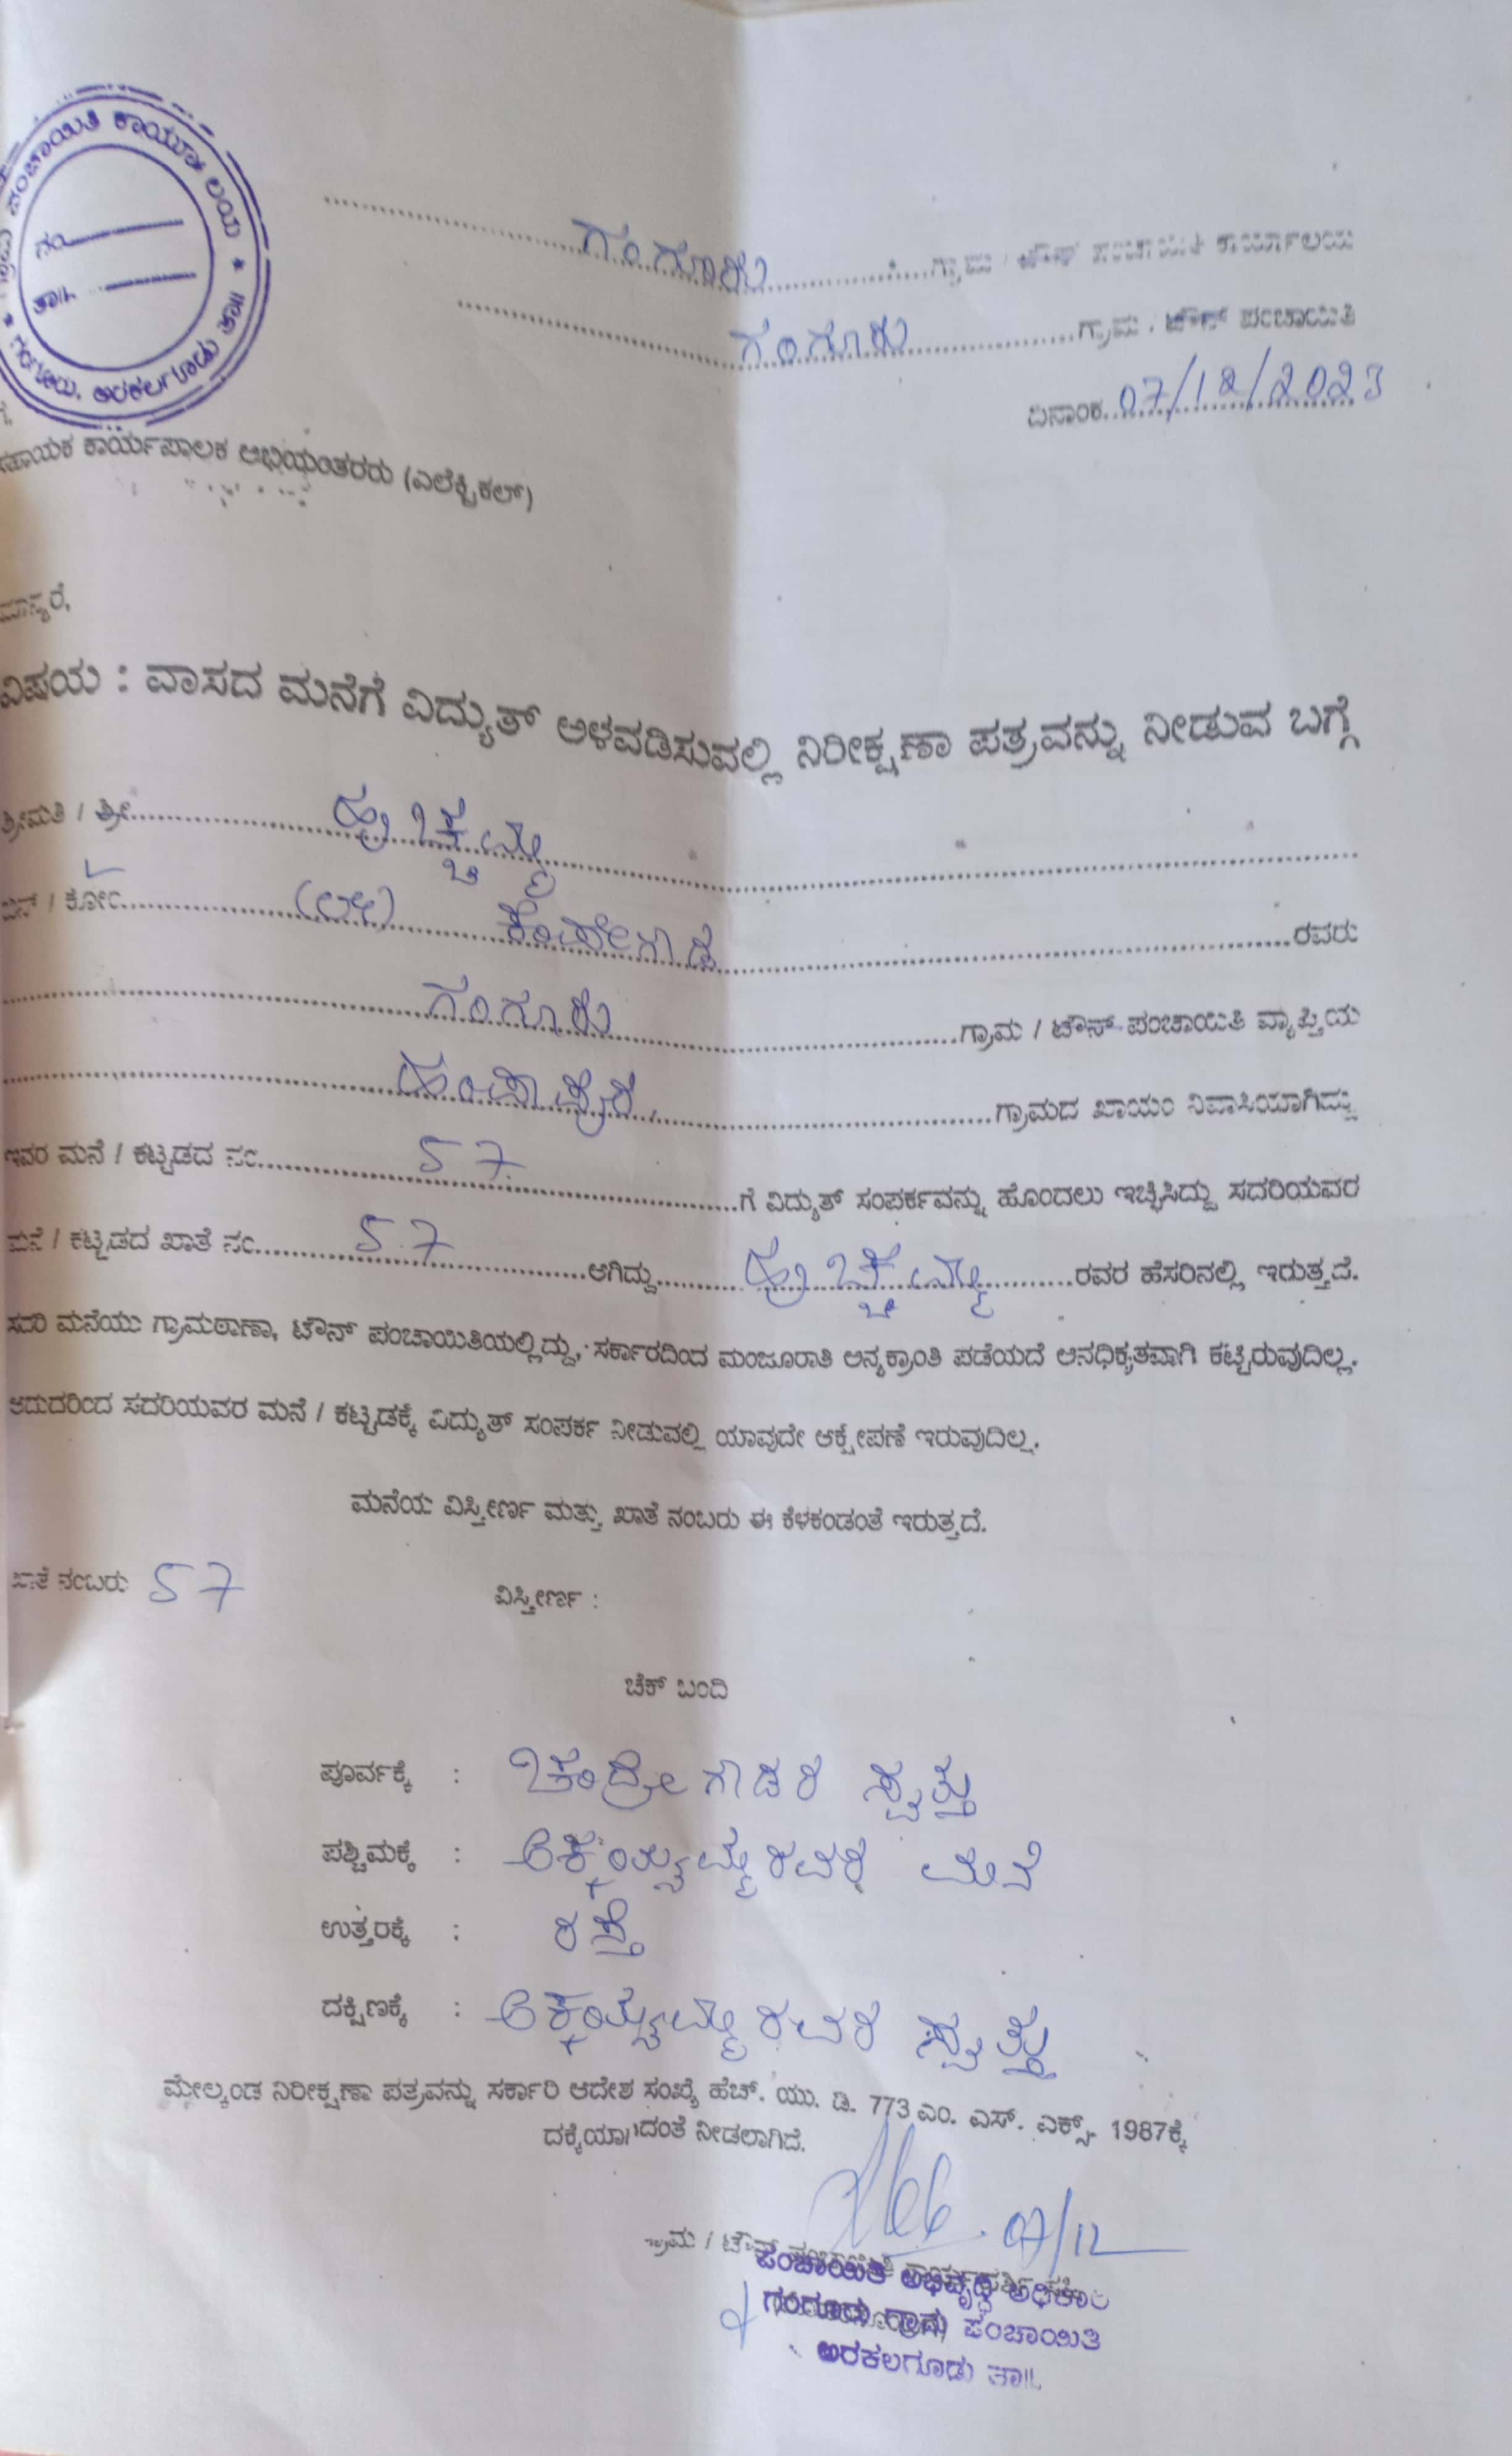 ಪಂಚಾಯಿತಿ ಕಾರ್ಯಾಲಯ * ಗಂಗೂರು, ಅರಕಲಗೂಡು ತಾ||
ನಂ
ತಾ||
ಗಂಗೂರು ಗ್ರಾಮ / ಟೌನ್ ಪಂಚಾಯಿತಿ ಕಾರ್ಯಾಲಯ
ಗಂಗೂರು ಗ್ರಾಮ / ಟೌನ್ ಪಂಚಾಯಿತಿ
ದಿನಾಂಕ 07/12/2023
ಸಹಾಯಕ ಕಾರ್ಯಪಾಲಕ ಅಭಿಯಂತರರು (ಎಲೆಕ್ಟ್ರಿಕಲ್)
ಮಾನ್ಯರೆ,
ವಿಷಯ : ವಾಸದ ಮನೆಗೆ ವಿದ್ಯುತ್ ಅಳವಡಿಸುವಲ್ಲಿ ನಿರೀಕ್ಷಣಾ ಪತ್ರವನ್ನು ನೀಡುವ ಬಗ್ಗೆ
ಶ್ರೀಮತಿ / ಶ್ರೀ ಹುಚ್ಚಮ್ಮ
ಬಿನ್ / ಕೋಂ (ಲೇ) ಕೆಂಪೇಗೌಡ ರವರು
ಗಂಗೂರು ಗ್ರಾಮ / ಟೌನ್ ಪಂಚಾಯಿತಿ ವ್ಯಾಪ್ತಿಯ
ಹಂಪಾಪುರ, ಗ್ರಾಮದ ಖಾಯಂ ನಿವಾಸಿಯಾಗಿದ್ದು
ಇವರ ಮನೆ / ಕಟ್ಟಡದ ನಂ. 57 ಗೆ ವಿದ್ಯುತ್ ಸಂಪರ್ಕವನ್ನು ಹೊಂದಲು ಇಚ್ಛಿಸಿದ್ದು ಸದರಿಯವರ
ಮನೆ / ಕಟ್ಟಡದ ಖಾತೆ ನಂ. 57 ಆಗಿದ್ದು ಹುಚ್ಚಮ್ಮ ರವರ ಹೆಸರಿನಲ್ಲಿ ಇರುತ್ತದೆ.
ಸದರಿ ಮನೆಯು ಗ್ರಾಮಠಾಣಾ, ಟೌನ್ ಪಂಚಾಯಿತಿಯಲ್ಲಿದ್ದು, ಸರ್ಕಾರದಿಂದ ಮಂಜೂರಾತಿ ಅನ್ಯಕ್ರಾಂತಿ ಪಡೆಯದೆ ಅನಧಿಕೃತವಾಗಿ ಕಟ್ಟಿರುವುದಿಲ್ಲ.
ಆದುದರಿಂದ ಸದರಿಯವರ ಮನೆ / ಕಟ್ಟಡಕ್ಕೆ ವಿದ್ಯುತ್ ಸಂಪರ್ಕ ನೀಡುವಲ್ಲಿ ಯಾವುದೇ ಆಕ್ಷೇಪಣೆ ಇರುವುದಿಲ್ಲ.
ಮನೆಯ ವಿಸ್ತೀರ್ಣ ಮತ್ತು ಖಾತೆ ನಂಬರು ಈ ಕೆಳಕಂಡಂತೆ ಇರುತ್ತದೆ.
ಖಾತೆ ನಂಬರು 57 ವಿಸ್ತೀರ್ಣ :
ಚೆಕ್ ಬಂದಿ
ಪೂರ್ವಕ್ಕೆ : ಚಂದ್ರೇಗೌಡರ ಸ್ವತ್ತು
ಪಶ್ಚಿಮಕ್ಕೆ : ಅಕ್ಕಯ್ಯಮ್ಮರವರ ಮನೆ
ಉತ್ತರಕ್ಕೆ : ರಸ್ತೆ
ದಕ್ಷಿಣಕ್ಕೆ : ಅಕ್ಕಯ್ಯಮ್ಮರವರ ಸ್ವತ್ತು
ಮೇಲ್ಕಂಡ ನಿರೀಕ್ಷಣಾ ಪತ್ರವನ್ನು ಸರ್ಕಾರಿ ಆದೇಶ ಸಂಖ್ಯೆ ಹೆಚ್. ಯು. ಡಿ. 773 ಎಂ. ಎಸ್. ಎಕ್ಸ್. 1987ಕ್ಕೆ
ದಕ್ಕೆಯಾಗದಂತೆ ನೀಡಲಾಗಿದೆ.
07/12
ಗ್ರಾಮ / ಟೌನ್
ಪಂಚಾಯಿತಿ ಅಭಿವೃದ್ಧಿ ಅಧಿಕಾರಿ
ಗಂಗೂರು ಗ್ರಾಮ ಪಂಚಾಯಿತಿ
ಅರಕಲಗೂಡು ತಾ||